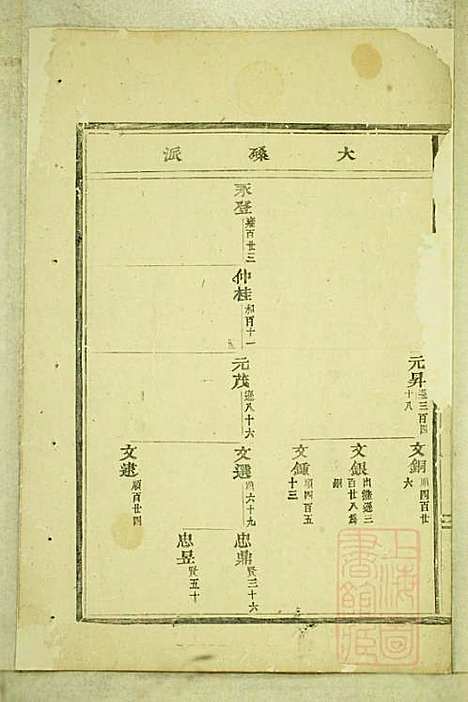 大磉派
元昇
三百四十八
文銅 四百廿六
文銀 出繼遜三百廿八爲銀
文鍾 順四百五十三
永登 百廿三
仲桂 和百十一
元茂 遜八十六
文選 順六十九
忠鼎 賢三十六
忠昱 賢五十
文建 順百廿四
上海圖書館藏